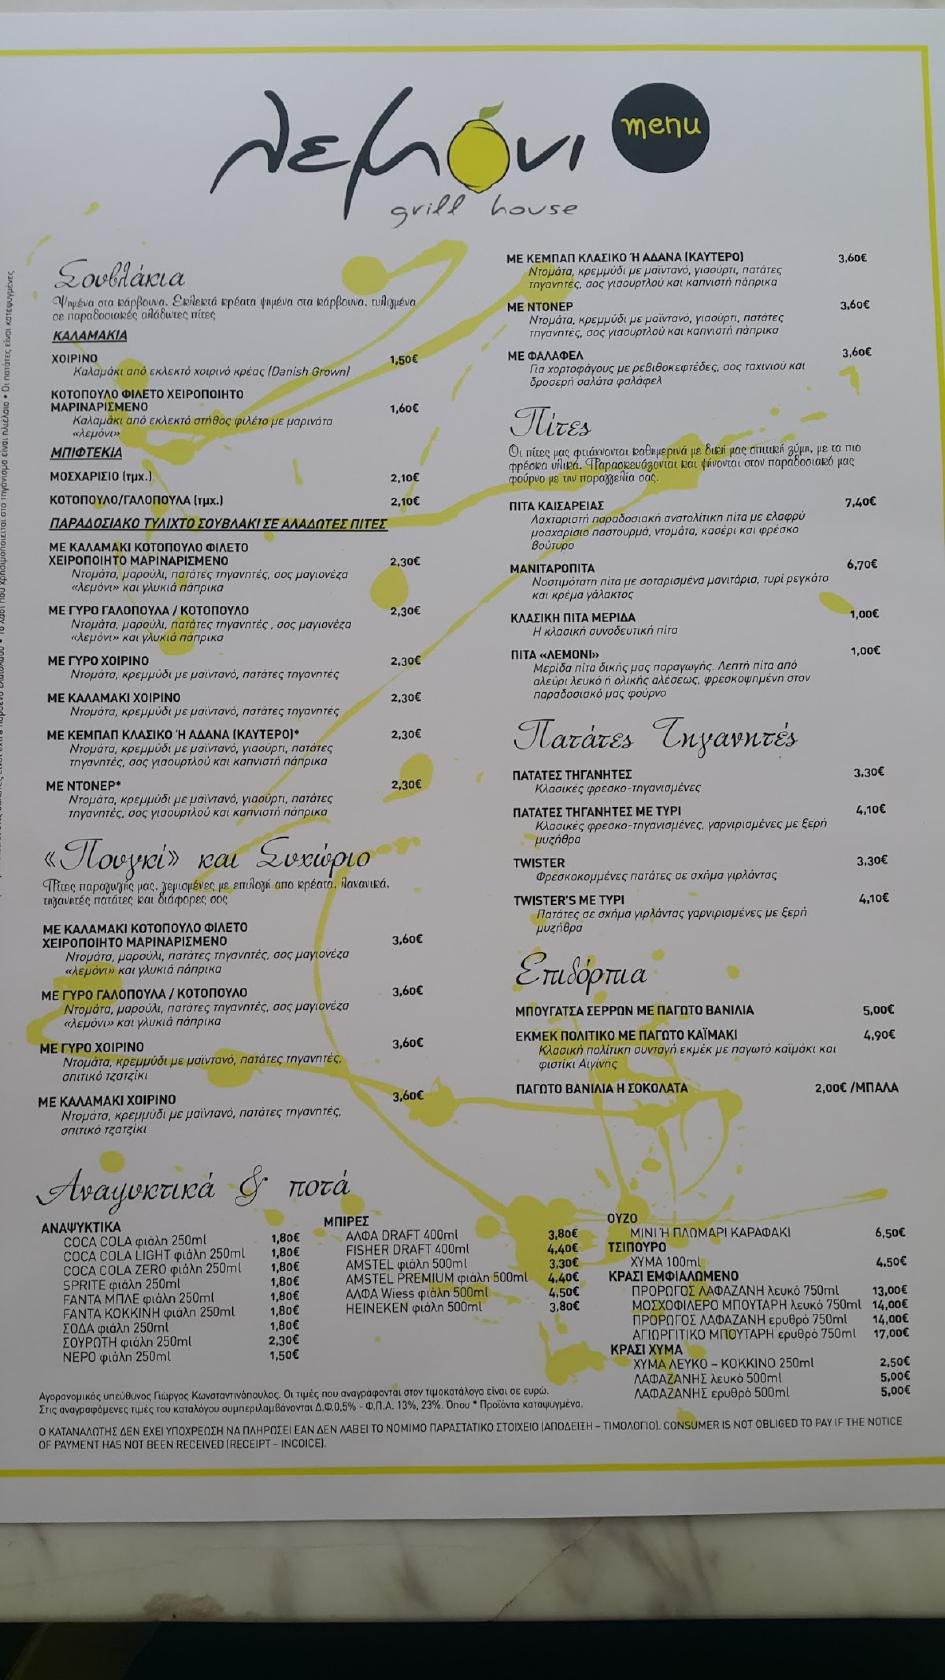 λεμόνι
menu
grill house
Σουβλάκια
Ψημένα στα κάρβουνα. Εκλεκτά κρέατα ψημένα στα κάρβουνα, τυλιγμένα
σε παραδοσιακές αλάδωτες πίτες
ΚΑΛΑΜΑΚΙΑ
ΧΟΙΡΙΝΟ 1,50€
Καλαμάκι από εκλεκτό χοιρινό κρέας (Danish Grown)
ΚΟΤΟΠΟΥΛΟ ΦΙΛΕΤΟ ΧΕΙΡΟΠΟΙΗΤΟ
ΜΑΡΙΝΑΡΙΣΜΕΝΟ 1,60€
Καλαμάκι από εκλεκτό στήθος φιλέτο με μαρινάτα
«λεμόνι»
ΜΠΙΦΤΕΚΙΑ
ΜΟΣΧΑΡΙΣΙΟ (τμχ.) 2,10€
ΚΟΤΟΠΟΥΛΟ/ΓΑΛΟΠΟΥΛΑ (τμχ.) 2,10€
ΠΑΡΑΔΟΣΙΑΚΟ ΤΥΛΙΧΤΟ ΣΟΥΒΛΑΚΙ ΣΕ ΑΛΑΔΩΤΕΣ ΠΙΤΕΣ
ΜΕ ΚΑΛΑΜΑΚΙ ΚΟΤΟΠΟΥΛΟ ΦΙΛΕΤΟ
ΧΕΙΡΟΠΟΙΗΤΟ ΜΑΡΙΝΑΡΙΣΜΕΝΟ 2,30€
Ντομάτα, μαρούλι, πατάτες τηγανητές, σος μαγιονέζα
«λεμόνι» και γλυκιά πάπρικα
ΜΕ ΓΥΡΟ ΓΑΛΟΠΟΥΛΑ / ΚΟΤΟΠΟΥΛΟ 2,30€
Ντομάτα, μαρούλι, πατάτες τηγανητές , σος μαγιονέζα
«λεμόνι» και γλυκιά πάπρικα
ΜΕ ΓΥΡΟ ΧΟΙΡΙΝΟ 2,30€
Ντομάτα, κρεμμύδι με μαϊντανό, πατάτες τηγανητές
ΜΕ ΚΑΛΑΜΑΚΙ ΧΟΙΡΙΝΟ 2,30€
Ντομάτα, κρεμμύδι με μαϊντανό, πατάτες τηγανητές
ΜΕ ΚΕΜΠΑΠ ΚΛΑΣΙΚΟ Ή ΑΔΑΝΑ (ΚΑΥΤΕΡΟ)* 2,30€
Ντομάτα, κρεμμύδι με μαϊντανό, γιαούρτι, πατάτες
τηγανητές, σος γιαουρτλού και καπνιστή πάπρικα
ΜΕ ΝΤΟΝΕΡ* 2,30€
Ντομάτα, κρεμμύδι με μαϊντανό, γιαούρτι, πατάτες
τηγανητές, σος γιαουρτλού και καπνιστή πάπρικα
«Πουγκί» και Συχώριο
Πίτες παραγωγής μας, γεμισμένες με επιλογή απο κρέατα, λαχανικά,
τηγανητές πατάτες και διάφορες σος
ΜΕ ΚΑΛΑΜΑΚΙ ΚΟΤΟΠΟΥΛΟ ΦΙΛΕΤΟ
ΧΕΙΡΟΠΟΙΗΤΟ ΜΑΡΙΝΑΡΙΣΜΕΝΟ 3,60€
Ντομάτα, μαρούλι, πατάτες τηγανητές, σος μαγιονέζα
«λεμόνι» και γλυκιά πάπρικα
ΜΕ ΓΥΡΟ ΓΑΛΟΠΟΥΛΑ / ΚΟΤΟΠΟΥΛΟ 3,60€
Ντομάτα, μαρούλι, πατάτες τηγανητές, σος μαγιονέζα
«λεμόνι» και γλυκιά πάπρικα
ΜΕ ΓΥΡΟ ΧΟΙΡΙΝΟ 3,60€
Ντομάτα, κρεμμύδι με μαϊντανό, πατάτες τηγανητές,
σπιτικό τζατζίκι
ΜΕ ΚΑΛΑΜΑΚΙ ΧΟΙΡΙΝΟ 3,60€
Ντομάτα, κρεμμύδι με μαϊντανό, πατάτες τηγανητές,
σπιτικό τζατζίκι
ΜΕ ΚΕΜΠΑΠ ΚΛΑΣΙΚΟ Ή ΑΔΑΝΑ (ΚΑΥΤΕΡΟ) 3,60€
Ντομάτα, κρεμμύδι με μαϊντανό, γιαούρτι, πατάτες
τηγανητές, σος γιαουρτλού και καπνιστή πάπρικα
ΜΕ ΝΤΟΝΕΡ 3,60€
Ντομάτα, κρεμμύδι με μαϊντανό, γιαούρτι, πατάτες
τηγανητές, σος γιαουρτλού και καπνιστή πάπρικα
ΜΕ ΦΑΛΑΦΕΛ 3,60€
Για χορτοφάγους με ρεβιθοκεφτέδες, σος ταχινιου και
δροσερή σαλάτα φαλάφελ
Πίτες
Οι πίτες μας φτιάχνονται καθημερινά με δική μας σπιτική ζύμη, με τα πιο
φρέσκα υλικά. Παρασκευάζονται και ψήνονται στον παραδοσιακό μας
φούρνο με την παραγγελία σας.
ΠΙΤΑ ΚΑΙΣΑΡΕΙΑΣ 7,40€
Λαχταριστή παραδοσιακή ανατολίτικη πίτα με ελαφρύ
μοσχαρίσιο παστουρμά, ντομάτα, κασέρι και φρέσκο
βούτυρο
ΜΑΝΙΤΑΡΟΠΙΤΑ 6,70€
Νοστιμότατη πίτα με σοταρισμένα μανιτάρια, τυρί ρεγκάτο
και κρέμα γάλακτος
ΚΛΑΣΙΚΗ ΠΙΤΑ ΜΕΡΙΔΑ 1,00€
Η κλασική συνοδευτική πίτα
ΠΙΤΑ «ΛΕΜΟΝΙ» 1,00€
Μερίδα πίτα δικής μας παραγωγής. Λεπτή πίτα από
αλεύρι λευκό ή ολικής αλέσεως, φρεσκοψημένη στον
παραδοσιακό μας φούρνο
Πατάτες Τηγανητές
ΠΑΤΑΤΕΣ ΤΗΓΑΝΗΤΕΣ 3,30€
Κλασικές φρεσκο-τηγανισμένες
ΠΑΤΑΤΕΣ ΤΗΓΑΝΗΤΕΣ ΜΕ ΤΥΡΙ 4,10€
Κλασικές φρεσκο-τηγανισμένες, γαρνιρισμένες με ξερή
μυζήθρα
TWISTER 3,30€
Φρεσκοκομμένες πατάτες σε σχήμα γιρλάντας
TWISTER'S ΜΕ ΤΥΡΙ 4,10€
Πατάτες σε σχήμα γιρλάντας γαρνιρισμένες με ξερή
μυζήθρα
Επιδόρπια
ΜΠΟΥΓΑΤΣΑ ΣΕΡΡΩΝ ΜΕ ΠΑΓΩΤΟ ΒΑΝΙΛΙΑ 5,00€
ΕΚΜΕΚ ΠΟΛΙΤΙΚΟ ΜΕ ΠΑΓΩΤΟ ΚΑΪΜΑΚΙ 4,90€
Κλασική πολίτικη συνταγή εκμέκ με παγωτό καϊμάκι και
φιστίκι Αιγίνης
ΠΑΓΩΤΟ ΒΑΝΙΛΙΑ Η ΣΟΚΟΛΑΤΑ 2,00€ /ΜΠΑΛΑ
Αναψυκτικά & ποτά
ΑΝΑΨΥΚΤΙΚΑ
COCA COLA φιάλη 250ml 1,80€
COCA COLA LIGHT φιάλη 250ml 1,80€
COCA COLA ZERO φιάλη 250ml 1,80€
SPRITE φιάλη 250ml 1,80€
FANTA ΜΠΛΕ φιάλη 250ml 1,80€
FANTA ΚΟΚΚΙΝΗ φιάλη 250ml 1,80€
ΣΟΔΑ φιάλη 250ml 1,80€
ΣΟΥΡΩΤΗ φιάλη 250ml 2,30€
ΝΕΡΟ φιάλη 250ml 1,50€
ΜΠΙΡΕΣ
ΑΛΦΑ DRAFT 400ml 3,80€
FISHER DRAFT 400ml 4,40€
AMSTEL φιάλη 500ml 3,30€
AMSTEL PREMIUM φιάλη 500ml 4,40€
ΑΛΦΑ Wiess φιάλη 500ml 4,50€
HEINEKEN φιάλη 500ml 3,80€
ΟΥΖΟ
ΜΙΝΙ Ή ΠΛΩΜΑΡΙ ΚΑΡΑΦΑΚΙ 6,50€
ΤΣΙΠΟΥΡΟ
ΧΥΜΑ 100ml 4,50€
ΚΡΑΣΙ ΕΜΦΙΑΛΩΜΕΝΟ
ΠΡΟΡΩΓΟΣ ΛΑΦΑΖΑΝΗ λευκό 750ml 13,00€
ΜΟΣΧΟΦΙΛΕΡΟ ΜΠΟΥΤΑΡΗ λευκό 750ml 14,00€
ΠΡΟΡΩΓΟΣ ΛΑΦΑΖΑΝΗ ερυθρό 750ml 14,00€
ΑΓΙΩΡΓΙΤΙΚΟ ΜΠΟΥΤΑΡΗ ερυθρό 750ml 17,00€
ΚΡΑΣΙ ΧΥΜΑ
ΧΥΜΑ ΛΕΥΚΟ – ΚΟΚΚΙΝΟ 250ml 2,50€
ΛΑΦΑΖΑΝΗΣ λευκό 500ml 5,00€
ΛΑΦΑΖΑΝΗΣ ερυθρό 500ml 5,00€
Αγορανομικός υπεύθυνος Γιώργος Κωνσταντινόπουλος. Οι τιμές που αναγράφονται στον τιμοκατάλογο είναι σε ευρώ.
Στις αναγραφόμενες τιμές του καταλόγου συμπεριλαμβάνονται Δ.Φ.0,5% - Φ.Π.Α. 13%, 23%. Όπου * Προϊόντα κατεψυγμένα.
Ο ΚΑΤΑΝΑΛΩΤΗΣ ΔΕΝ ΕΧΕΙ ΥΠΟΧΡΕΩΣΗ ΝΑ ΠΛΗΡΩΣΕΙ ΕΑΝ ΔΕΝ ΛΑΒΕΙ ΤΟ ΝΟΜΙΜΟ ΠΑΡΑΣΤΑΤΙΚΟ ΣΤΟΙΧΕΙΟ (ΑΠΟΔΕΙΞΗ – ΤΙΜΟΛΟΓΙΟ). CONSUMER IS NOT OBLIGED TO PAY IF THE NOTICE
OF PAYMENT HAS NOT BEEN RECEIVED (RECEIPT – INCOICE).
είναι έξτρα παρθένο ελαιόλαδο • Το λάδι που χρησιμοποιείται στο τηγάνισμα είναι ηλιέλαιο • Οι πατάτες είναι κατεψυγμένες